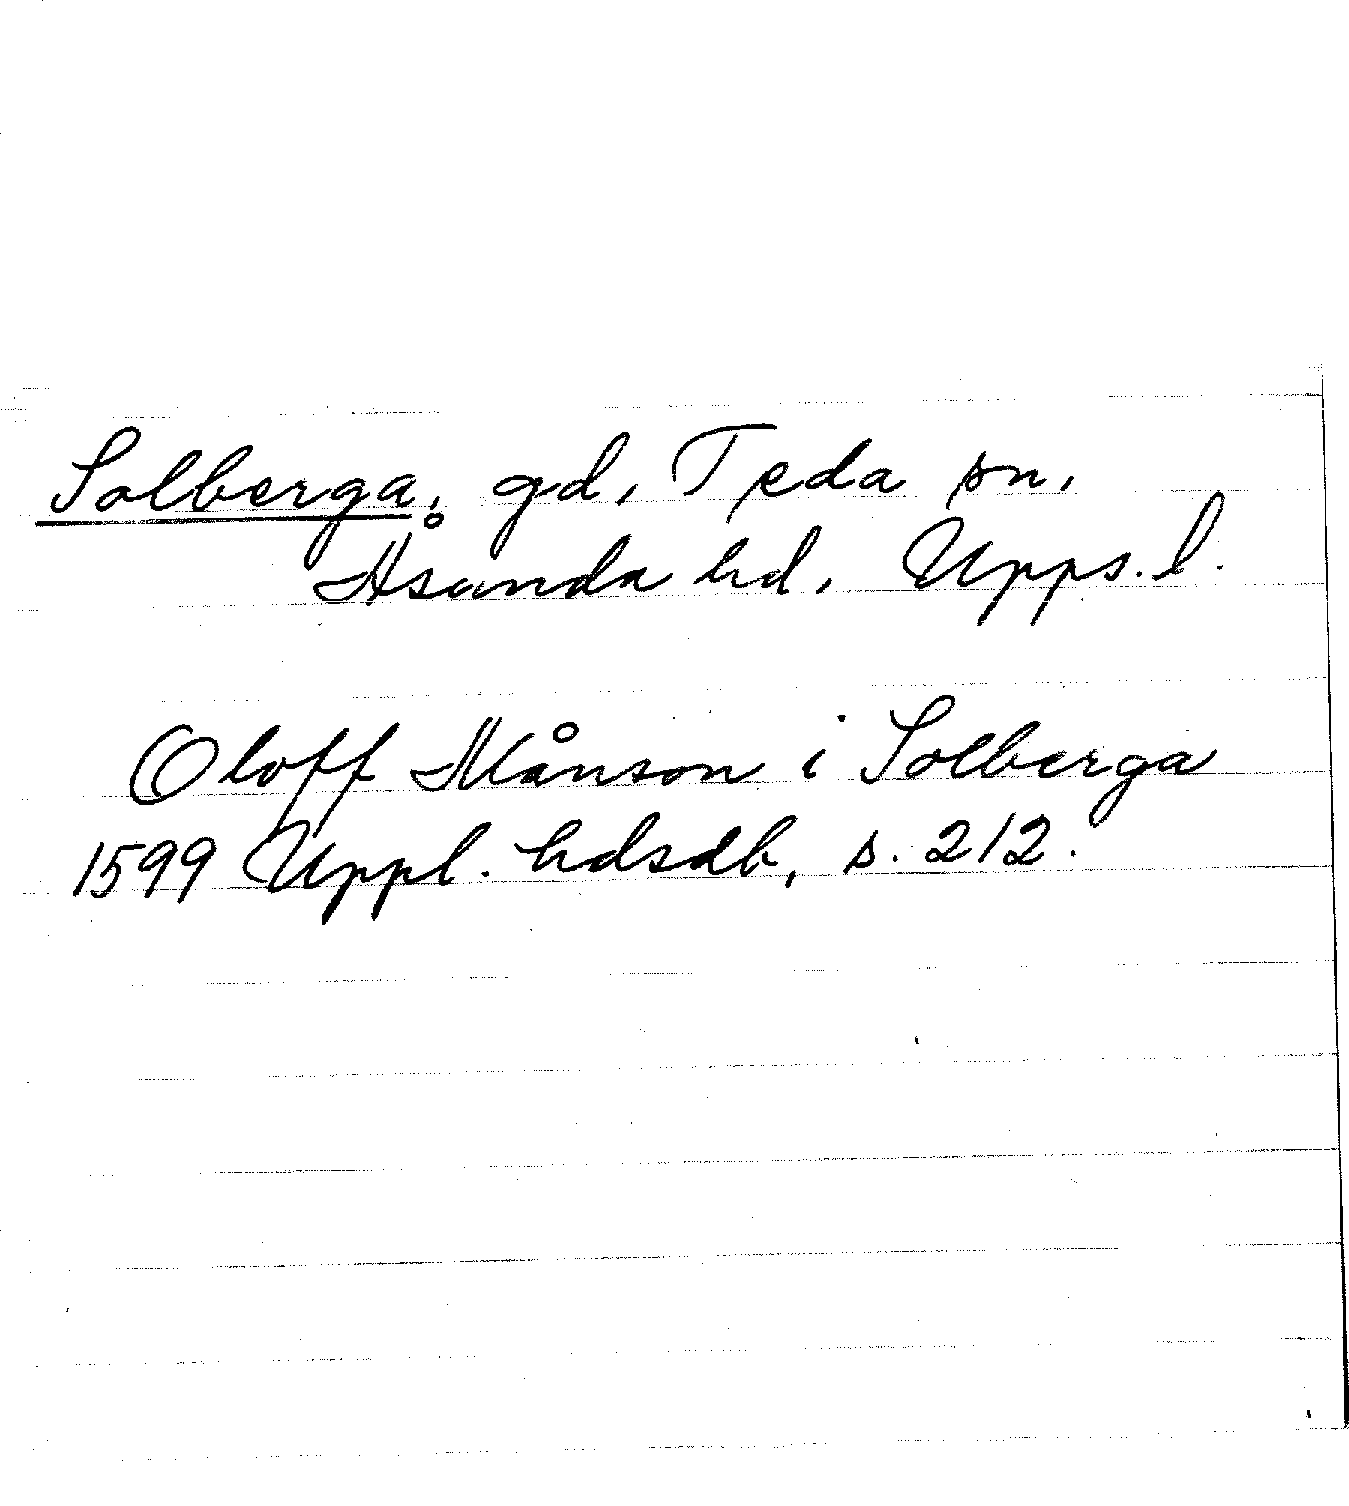 Solberga, gd, Teda sn,
Åsunda hd, Upps. l.
Oloff Månson i Solberga
1599 Uppl. hdsdb, s. 212.